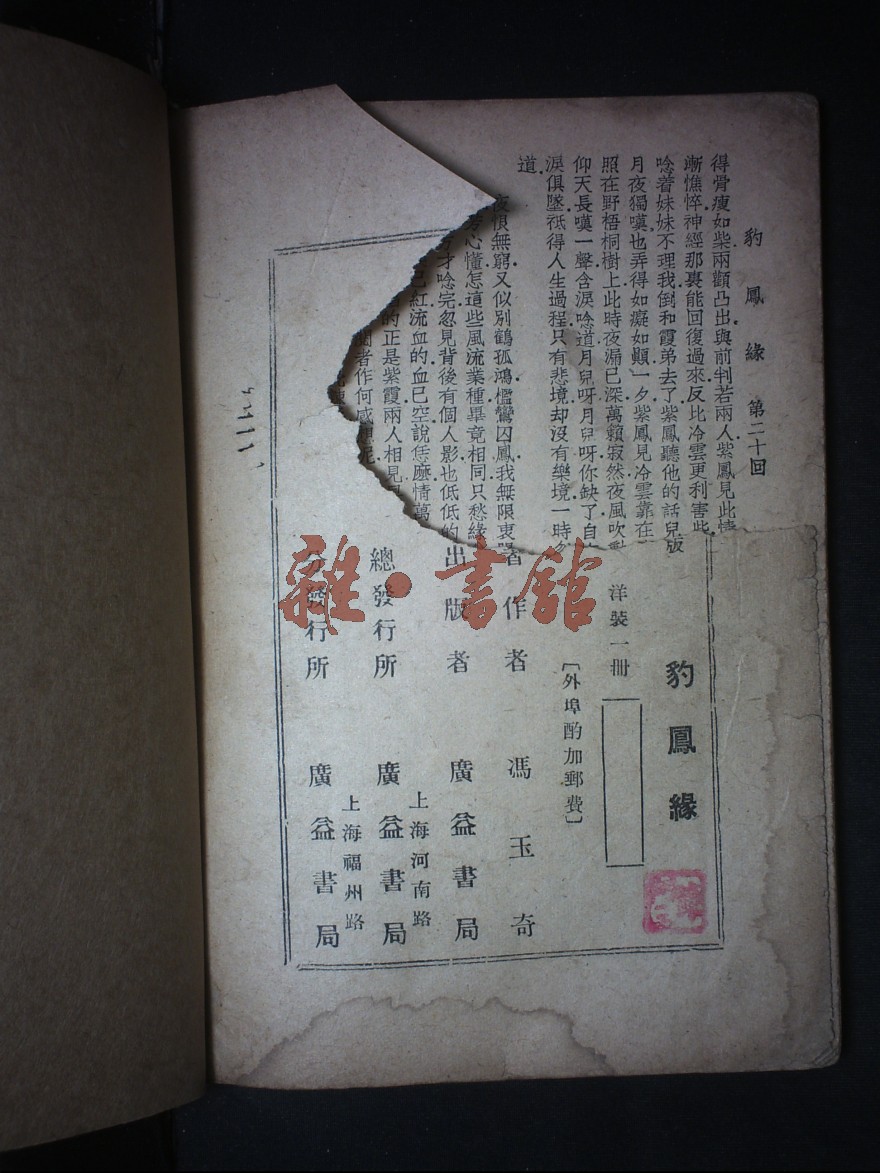 豹鳳緣 第二十回
得骨瘦如柴兩顴凸出與前判若兩人紫鳳見此情
漸憔悴神經那裏能回復過來反比冷雲更利害些
唸着妹妹不理我倒和霞弟去了紫鳳聽他的話兒版
月夜獨嘆也弄得如癡如顛一夕紫鳳見冷雲靠在
照在野梧桐樹上此時夜漏已深萬籟寂然夜風吹
仰天長嘆一聲含淚唸道月兒呀月兒呀你缺了自
淚俱墜祇得人生過程只有悲境却沒有樂境一時
道
恨無窮又似別鶴孤鴻檻鸞囚鳳我無限衷
心懂怎這些風流業種畢竟相同只愁緣
才唸完忽見背後有個人影也低低的
已紅流血的血已空說恁麼情萬
的正是紫霞兩人相見
者作何感
豹鳳緣
洋裝一冊
〔外埠酌加郵費〕
著作者 馮玉奇
出版者 廣益書局
上海河南路
總發行所 廣益書局
上海福州路
分發行所 廣益書局
雜·書館